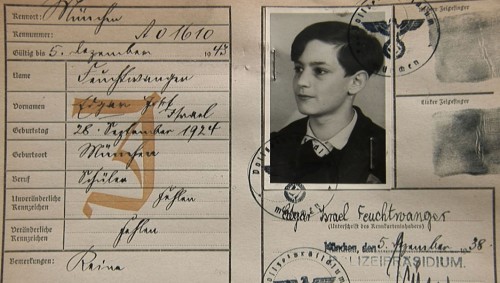 Kennort: München
Kennummer: A 01610
Gültig bis 5. Dezember 1943
Name Feuchtwanger
Vornamen Edgar Josef
Israel
Geburtstag 28. September 1924
Geburtsort München
Beruf Schüler
Unveränderliche Kennzeichen fehlen
Veränderliche Kennzeichen fehlen
Bemerkungen: Keine
J
Zeigefinger
Linker Zeigefinger
Edgar Israel Feuchtwanger
(Unterschrift des Kennkarteninhabers)
München, den 5. Dezember 1938
POLIZEIPRÄSIDIUM.